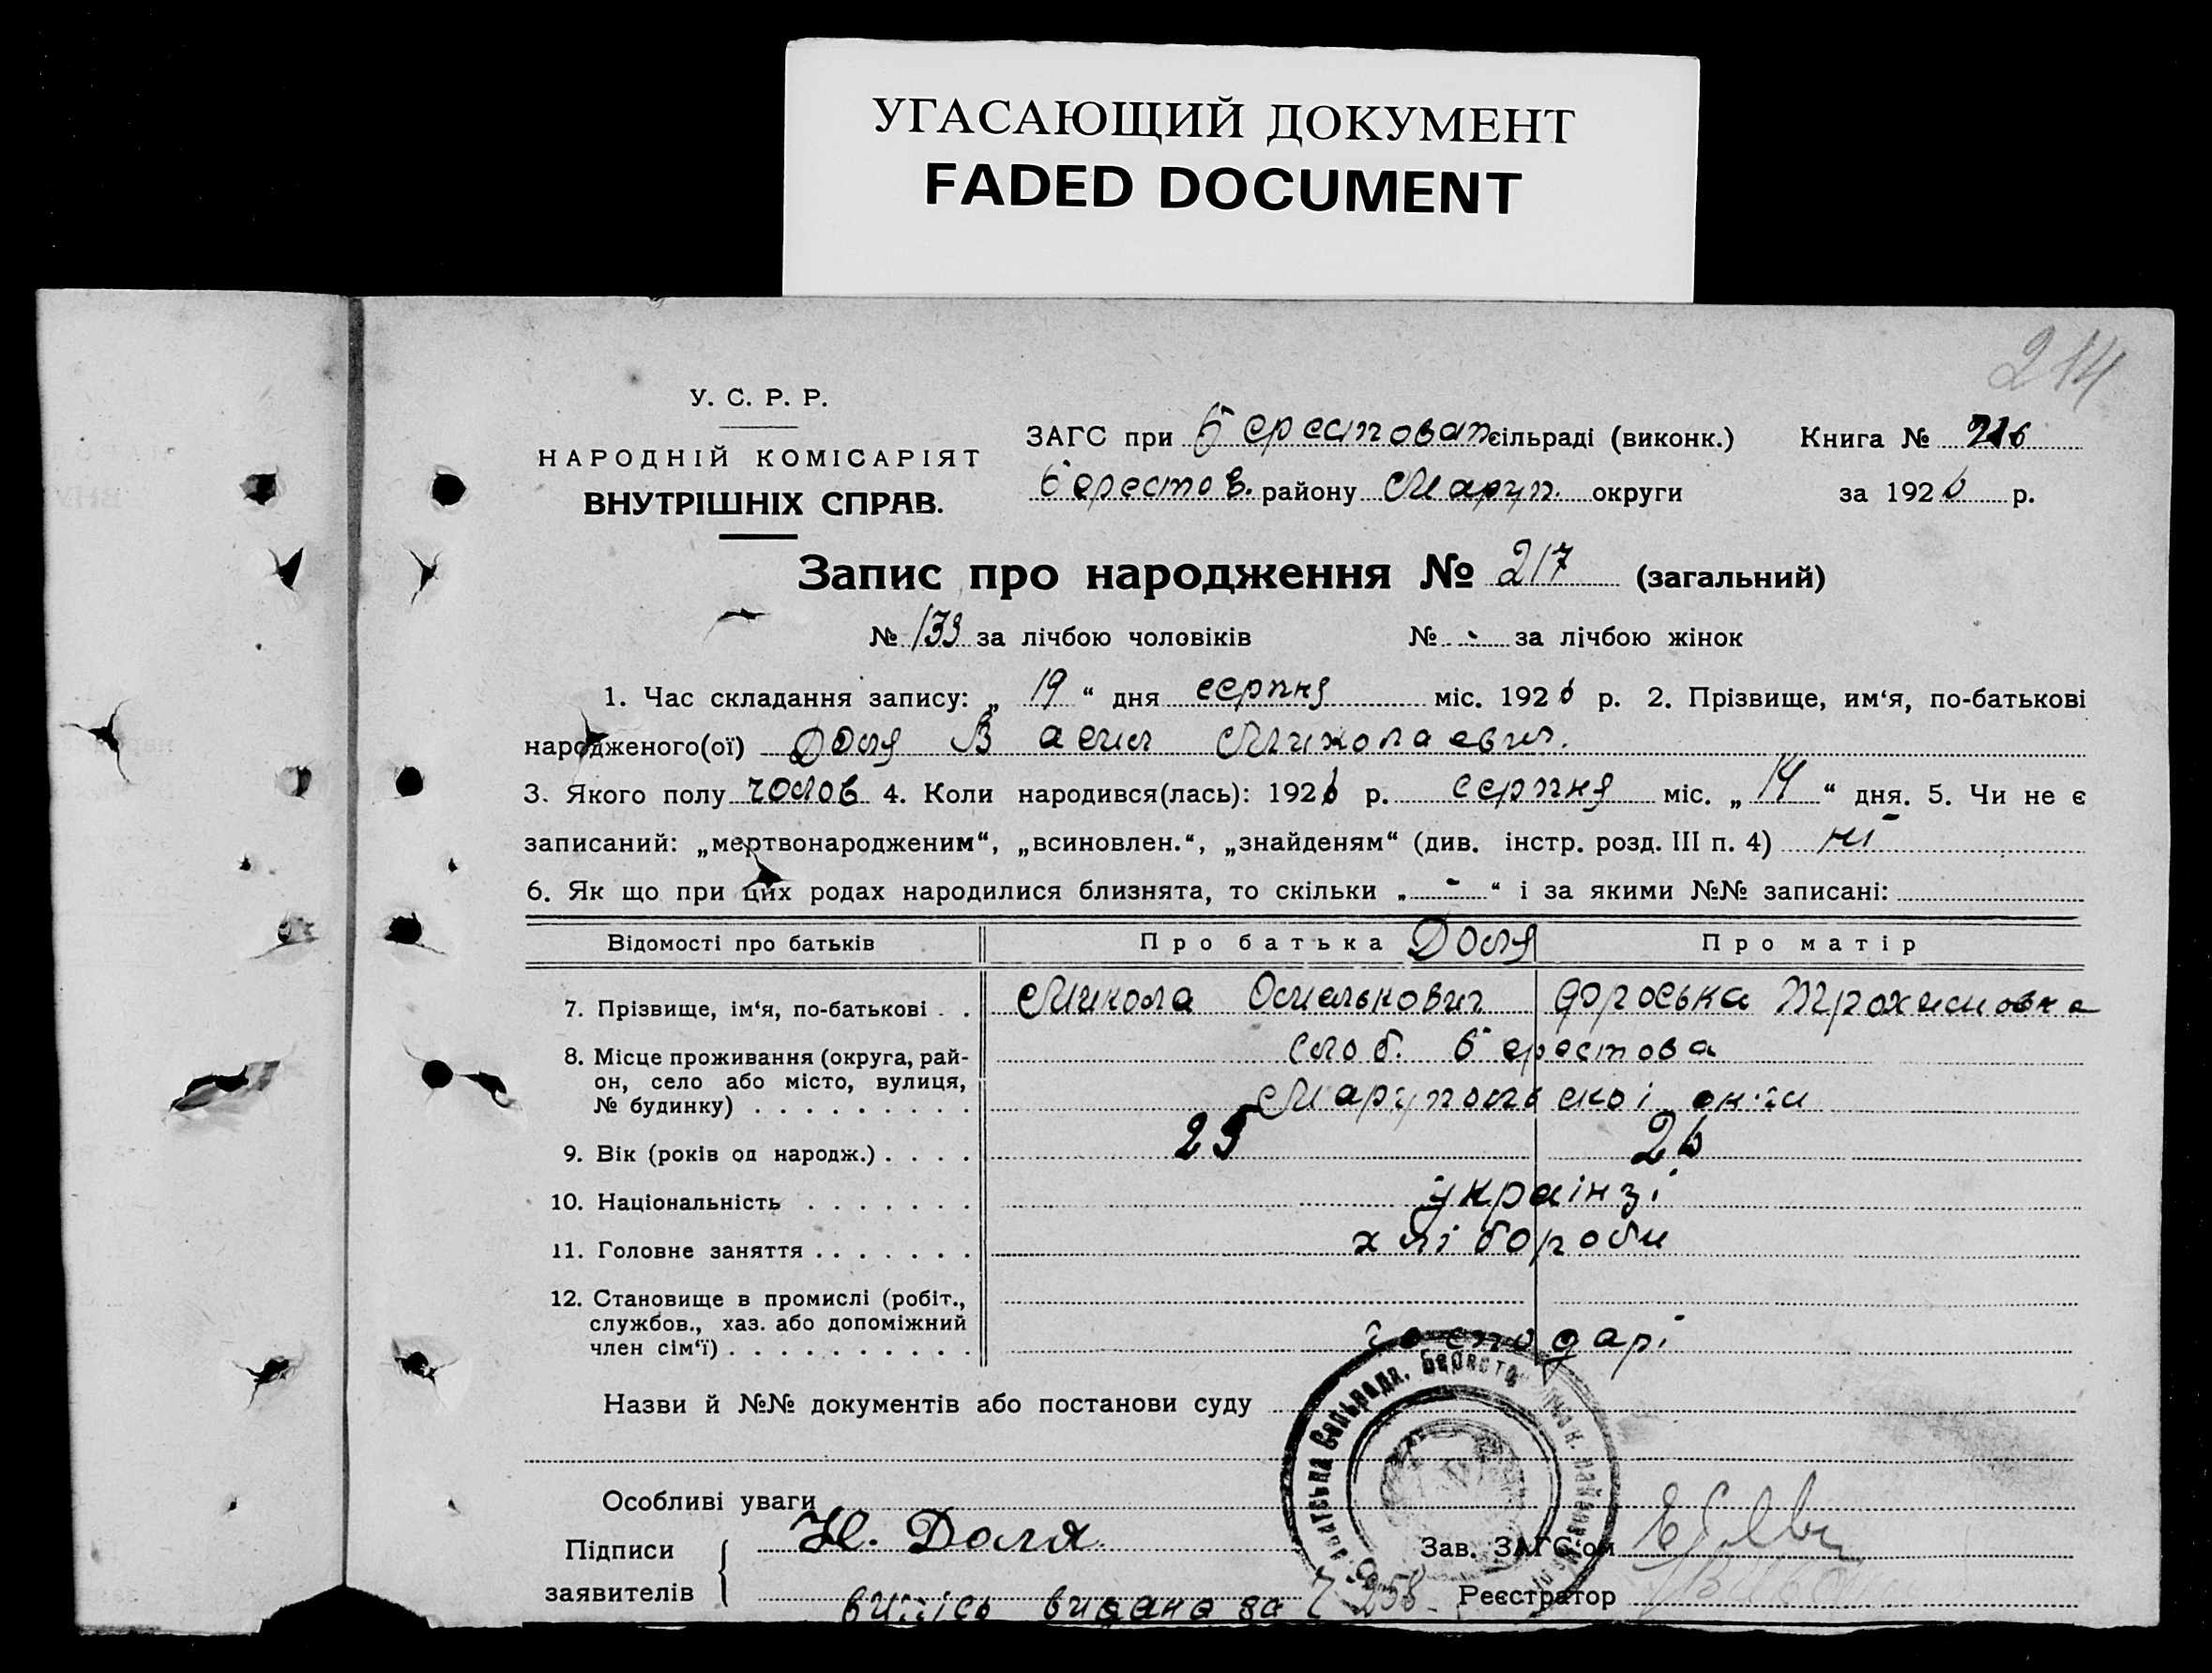 УГАСАЮЩИЙ ДОКУМЕНТ
FADED DOCUMENT
214
У. С. Р. Р.
НАРОДНІЙ КОМІСАРІЯТ
ВНУТРІШНІХ СПРАВ.
ЗАГС при Берестоват сільраді (виконк.) Книга № 216
Берестов. району Маруп. округи за 1926 р.
Запис про народження № 217 (загальний)
№ 139 за лічбою чоловіків № - за лічбою жінок
1. Час складання запису: „ 19 “ дня серпня міс. 1926 р. 2. Прізвище, им‘я, по-батькові
народженого(ої) Доля Васил Миколаевич.
3. Якого полу чолов 4. Коли народився(лась): 1926 р. серпня міс. „ 14 “ дня. 5. Чи не є
записаний: „мертвонародженим“, „всиновлен.“, „знайденям“ (див. інстр. розд. III п. 4) ні
6. Як що при цих родах народилися близнята, то скільки „ - “ і за якими №№ записані:
Відомості про батьків Про батька Доля Про матір
7. Прізвище, ім‘я, по-батькові . . Микола Омельнович Фроська Трохимовна
8. Місце проживання (округа, рай- слоб. Берестова
он, село або місто, вулиця,
№ будинку) . . . . . . . . . Марупольскоі
9. Вік (років од народж.) . . . . 25 26
10. Національність . . . . . . . украінзі
11. Головне заняття . . . . . . . хлібороби
12. Становище в промислі (робіт.,
службов., хаз. або допоміжний
член сім‘ї) . . . . . . . . . . господарі
Назви й №№ документів або постанови суду
Сільрада, Берестов
Особливі уваги
Підписи Н. Доля Зав. ЗАГС‘ом
заявителів випісь видана за 258 Реєстратор